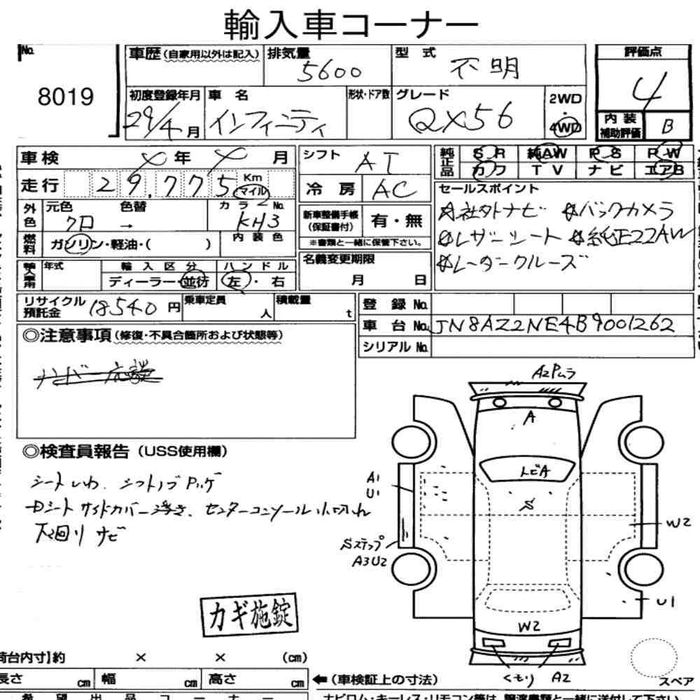 輸入車コーナー
No. 8019
車歴 (自家用以外は記入) 排気量 5600 型式 不明 評価点 4
初度登録年月 29/4月 車名 インフィニティ 形状・ドア数 グレード QX56 2WD 4WD 内装補助評価 B
車検 年 月 シフト AT 純正品 SR 純AW PS PW
カワ TV ナビ エアB
走行 29,775 Km マイル 冷房 AC セールスポイント
外色 元色 クロ 色替 → カラーNo. KH3 新車整備手帳(保証書付) 有・無 社外ナビ バックカメラ
※書類と一緒に保管下さい。
燃料 ガソリン・軽油・( ) 内装色 レザーシート 純正22AW
輸入車用 年式 輸入区分 ディーラー・並行 ハンドル 左・右 名義変更期限 月 日 レーダークルーズ
リサイクル預託金 18540円 乗車定員 人 積載量 t 登録No.
車台No. JN8AZ2NE4B9001262
シリアルNo.
◎注意事項(修復・不具合箇所および状態等)
◎検査員報告(USS使用欄)
シートしわ、シフトノブハゲ
Dシートサイドカバー浮き、センターコンソール小切れ
下廻りサビ
A2Pムラ
A
トビA
S
A1
U1
W2
Sステップ
A3U2
U1
W2
くもり A2
スペア
カギ施錠
荷台内寸】約 × × (cm)
長さ cm 幅 cm 高さ cm ←(車検証上の寸法)
希望出品コーナー ナビロム・キーレス・リモコン等は、譲渡書類と一緒に送付して下さい